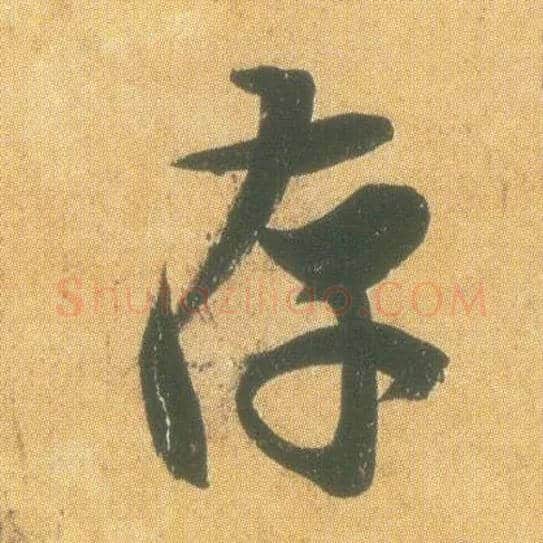 存
Shufaziliao.COM